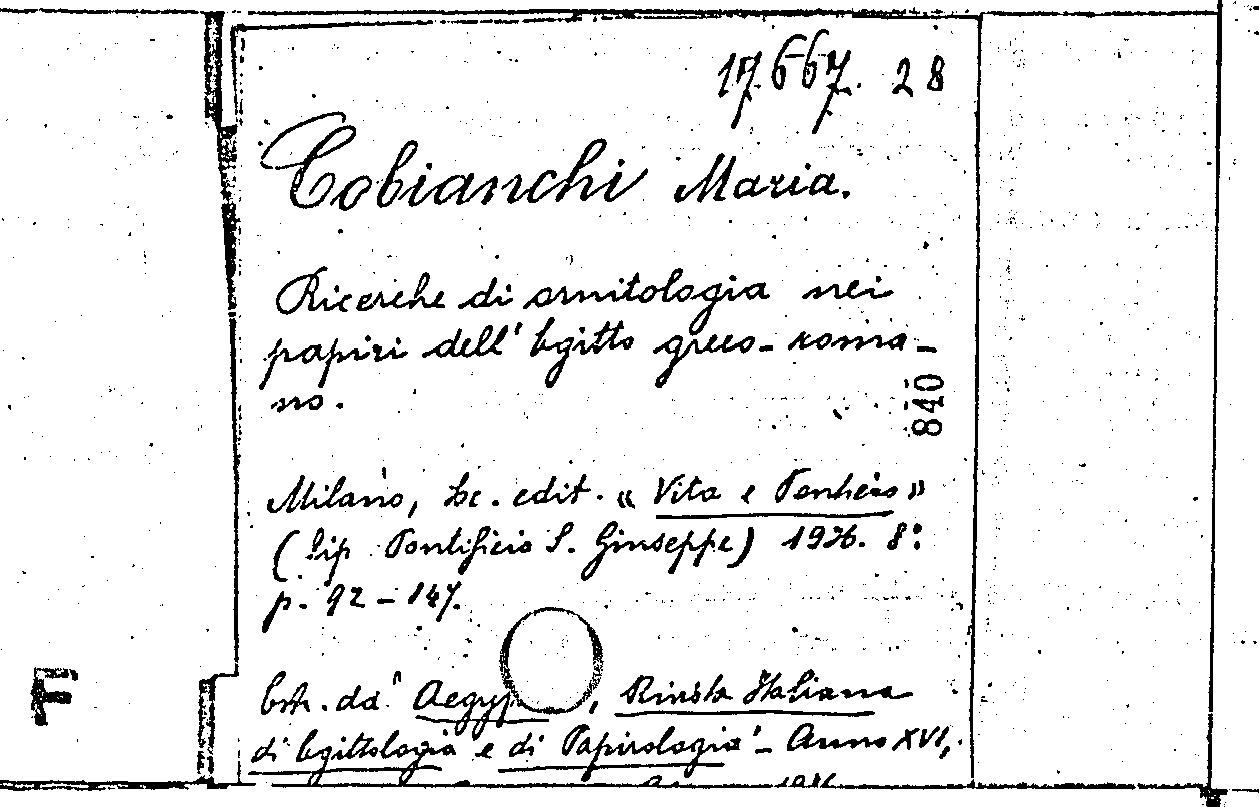 17.667. 28
Cobianchi Maria.
Ricerche di ornitologia nei
papiri dell' Egitto greco-roma-
no.
840
Milano, Soc. edit. « Vita e Pensiero »
(Tip. Pontificio S. Giuseppe) 1936. 8°.
p. 92-147.
Estr. da' Aegyp , Rivista Italiana
F
di Egittologia e di Papirologia' - Anno XVI,
1936